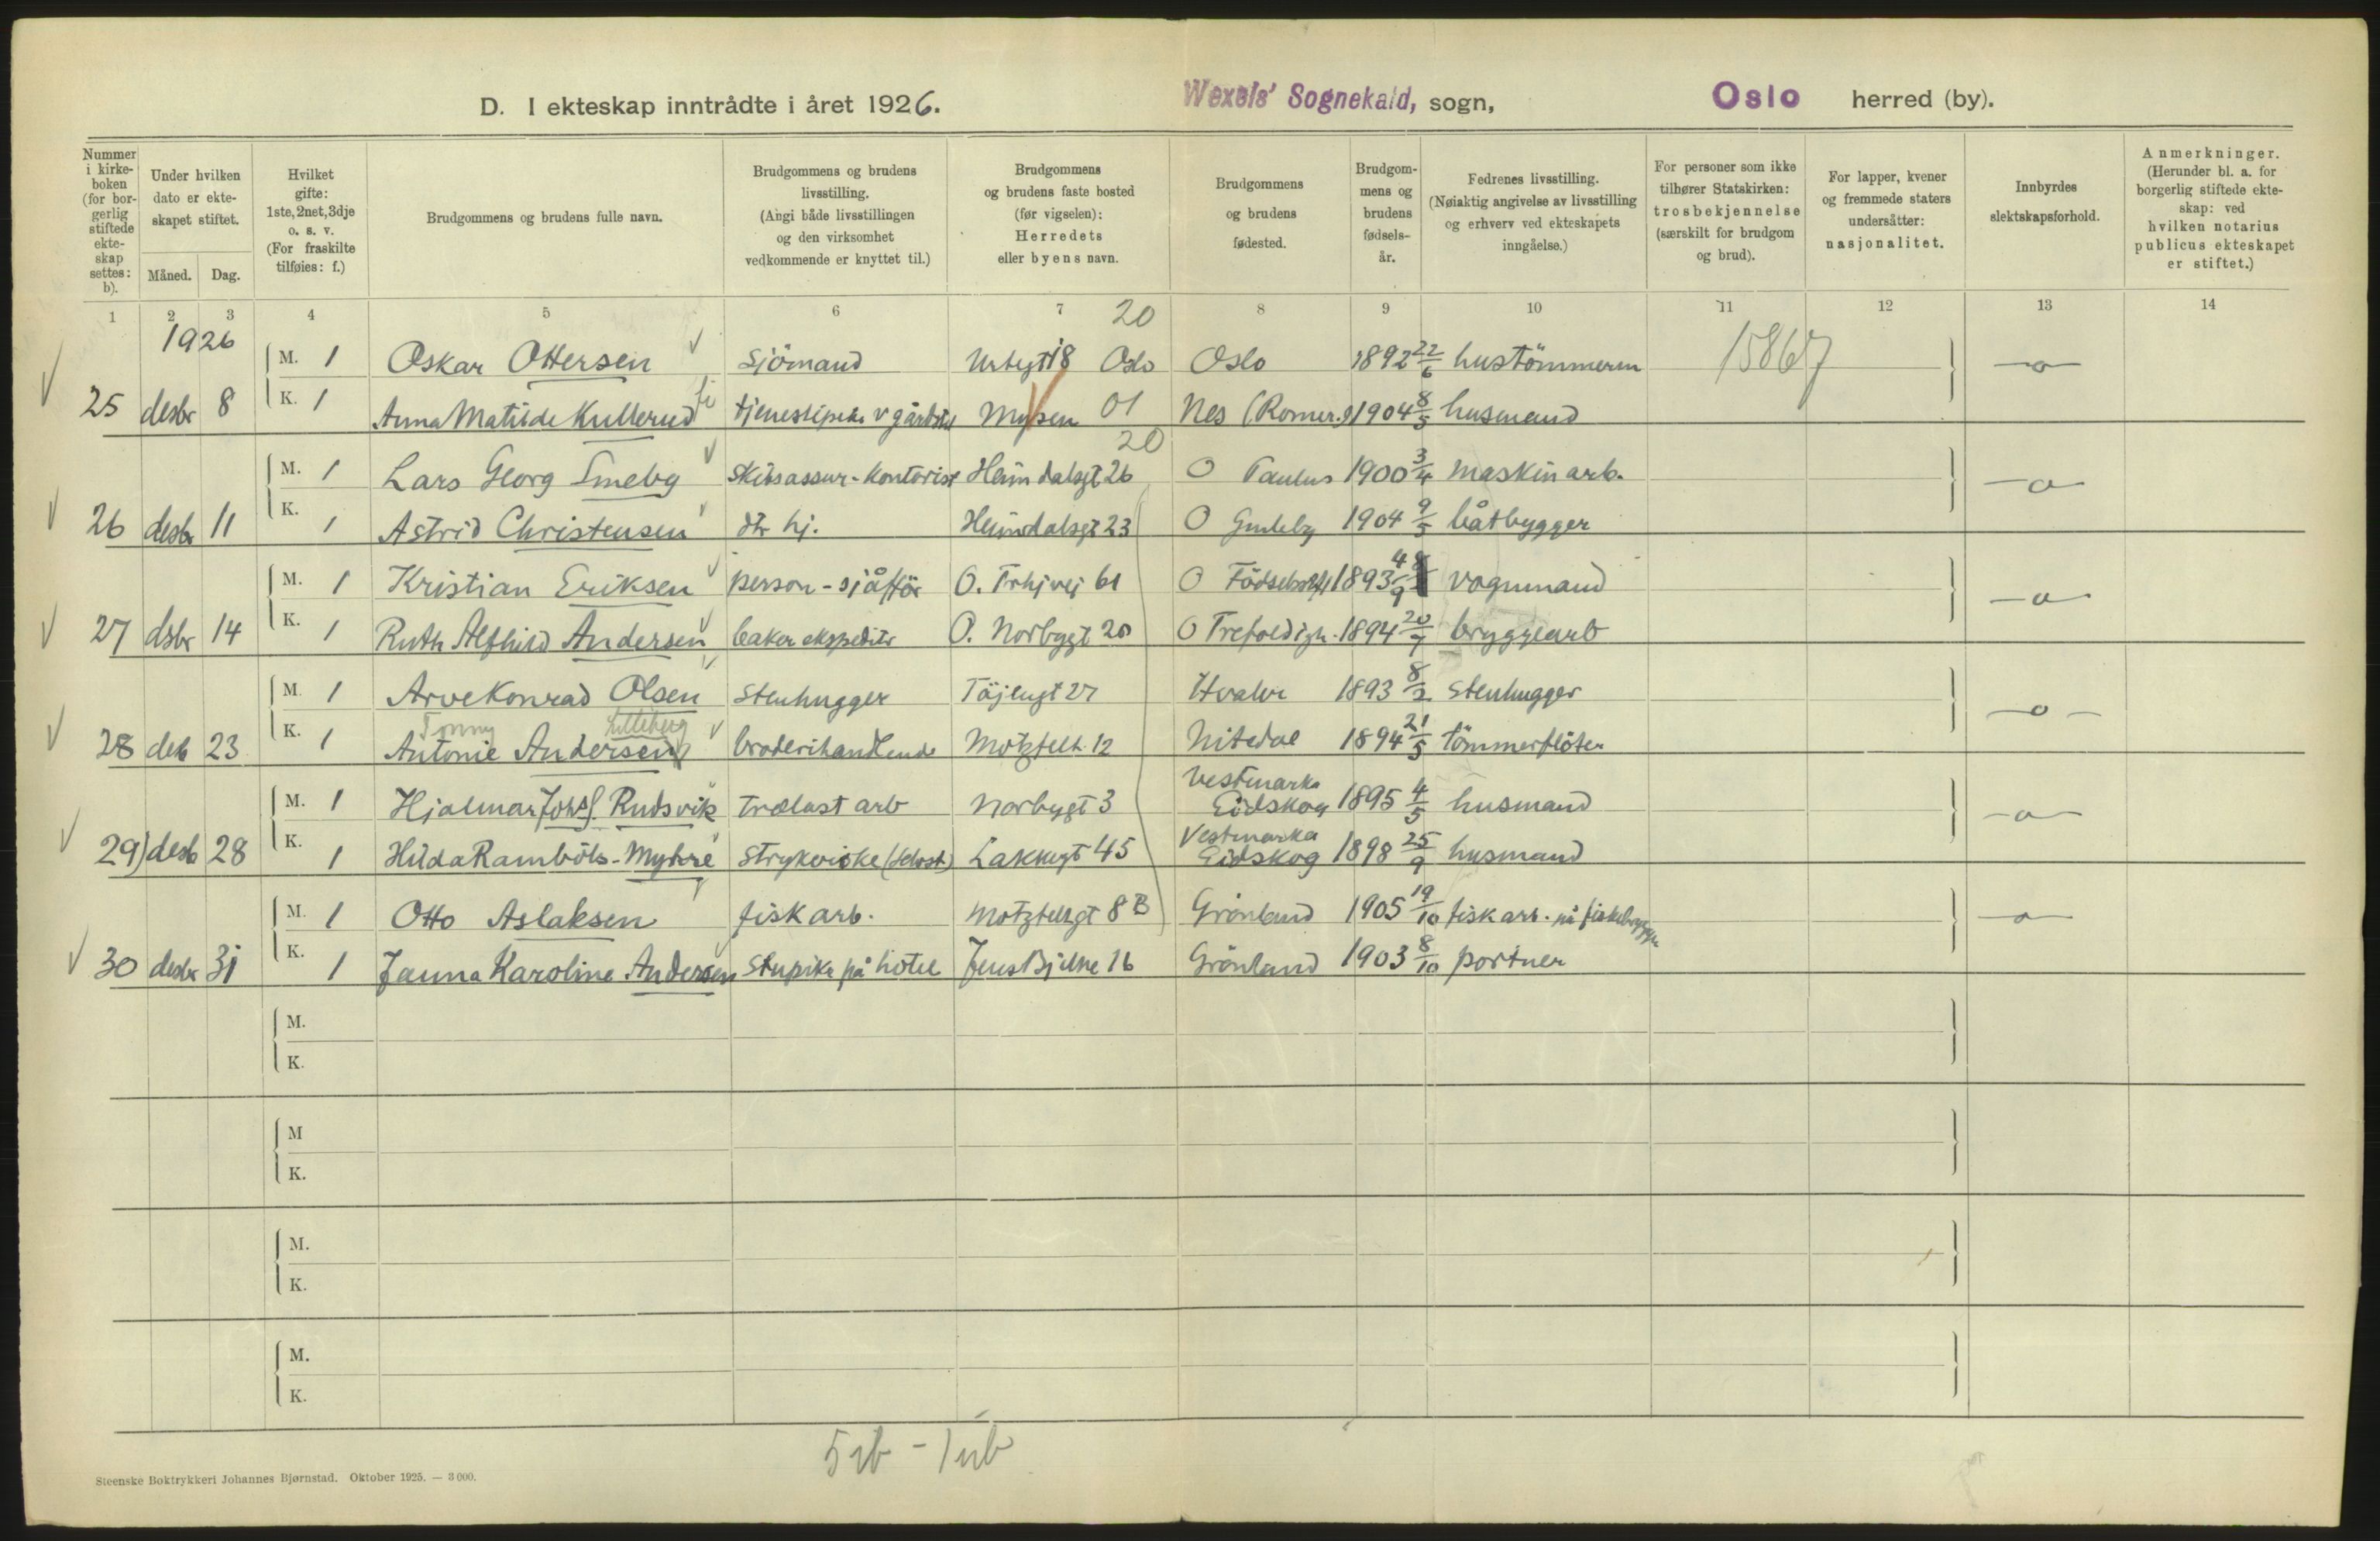 D. I ekteskap inntrådte i året 1926. Wexels' Sognekald, sogn, Oslo herred (by).
Nummer i kirke-boken (for bor-gerlig stiftede ekte-skap settes: b).
Under hvilken dato er ekte-skapet stiftet.
Måned. Dag.
Hvilket gifte: 1ste, 2net, 3dje o. s. v. (For fraskilte tilføies: f.)
Brudgommens og brudens fulle navn.
Brudgommens og brudens livsstilling. (Angi både livsstillingen og den virksomhet vedkommende er knyttet til.)
Brudgommens og brudens faste bosted (før vigselen): Herredets eller byens navn.
Brudgommens og brudens fødested.
Brudgom-mens og brudens fødsels-år.
Fedrenes livsstilling. (Nøiaktig angivelse av livsstilling og erhverv ved ekteskapets inngåelse.)
For personer som ikke tilhører Statskirken: trosbekjennelse (særskilt for brudgom og brud).
For lapper, kvener og fremmede staters undersåtter: nasjonalitet.
Innbyrdes slektskapsforhold.
Anmerkninger. (Herunder bl. a. for borgerlig stiftede ekte-skap: ved hvilken notarius publicus ekteskapet er stiftet.)
1 2 3 4 5 6 7 8 9 10 11 12 13 14
1926 20
M. 1 Oskar Ottersen Sjömand Urtegt 18 Oslo Oslo 1892 22/6 hustömmerm 15867 —o—
25 desbr 8 K. 1 Anna Matilde Kullerud v gårdsbr Mysen 01 Nes (Romer.) 1904 8/5 husmand
20
M. 1 Lars Georg Smeby Skibsassur-kontorist Heimdalsgt 26 O Paulus 1900 3/4 maskinarb. —o—
26 desbr 11 K. 1 Astrid Christensen dtr hj. Heimdalsgt 23 O Gamleby 1904 9/5 båtbygger
M. 1 Kristian Eriksen person-sjåfför O. Trhjvej 61 O 1893 4/9 vognmand —o—
27 dsbr 14 K. 1 Ruth Alfhild Andersen baker ekspeditr O. Norbygt 20 O Trefoldigh. 1894 20/7 bryggearb
M. 1 Arve Konrad Olsen Stenhugger Töjengt 27 Hvaler 1893 8/2 Stenhugger —o—
Tonny Lilleberg
28 des 23 K. 1 Antonie Andersen broderihandlende Motzfelt. 12 Nitedal 1894 21/5 tömmerflöter
M. 1 Hjalmar Johs. Rudsvik trælast arb Norbygt 3 Vestmarka Eidskog 1895 4/5 husmand —o—
29) desb 28 K. 1 Hilda Ramböls-Myhre Strykerske (selvst.) Lakkegt 45 Vestmarka Eidskog 1898 25/9 husmand
M. 1 Otto Aslaksen fiskarb. Motzfeltgt 8B Grönland 1905 19/10 fiskarb. på fiskebryggen —o—
30 desbr 31 K. 1 Janna Karoline Andersen Stupike på hotel Jens Bjelke 16 Grönland 1903 8/10 portner
M.
K.
M
K.
M.
K.
M.
K.
Steenske Boktrykkeri Johannes Bjørnstad. Oktober 1925. — 3 000.